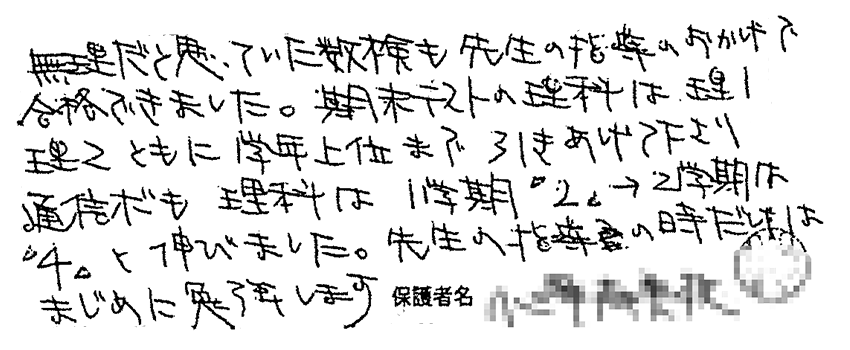 無理だと思っていた数検も先生の指導のおかげで
合格できました。期末テストの理科は理1
理2ともに学年上位まで引きあげて下さり
通信ボも理科は1学期『2』→2学期は
『4』と伸びました。先生の指導の時だけは
まじめに勉強します 保護者名